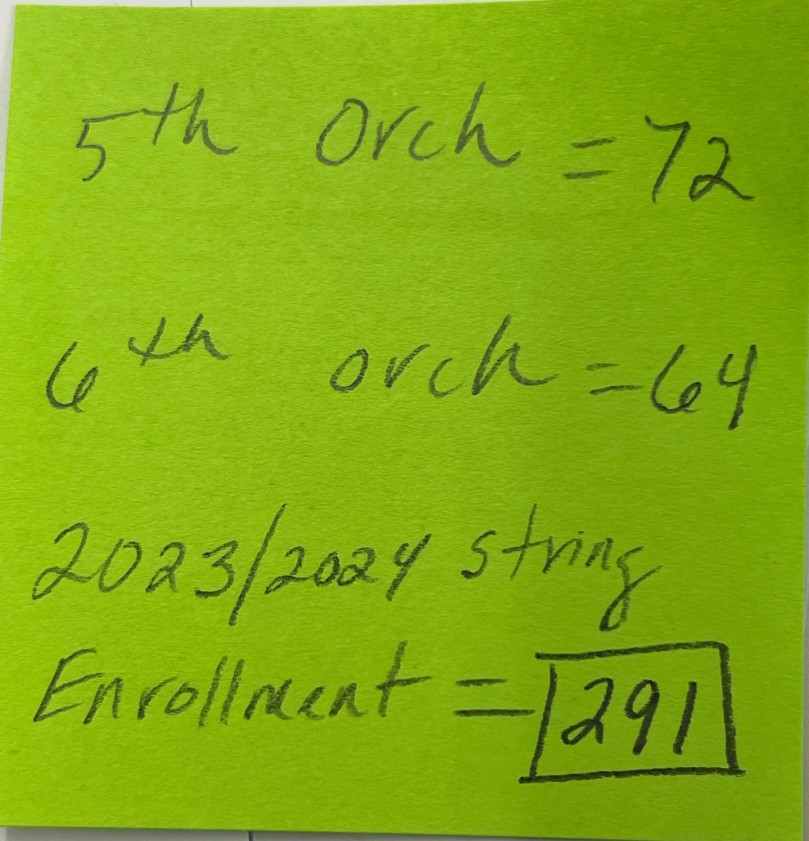 5th Orch = 72
6th orch = 64
2023/2024 string
Enrollment = 291